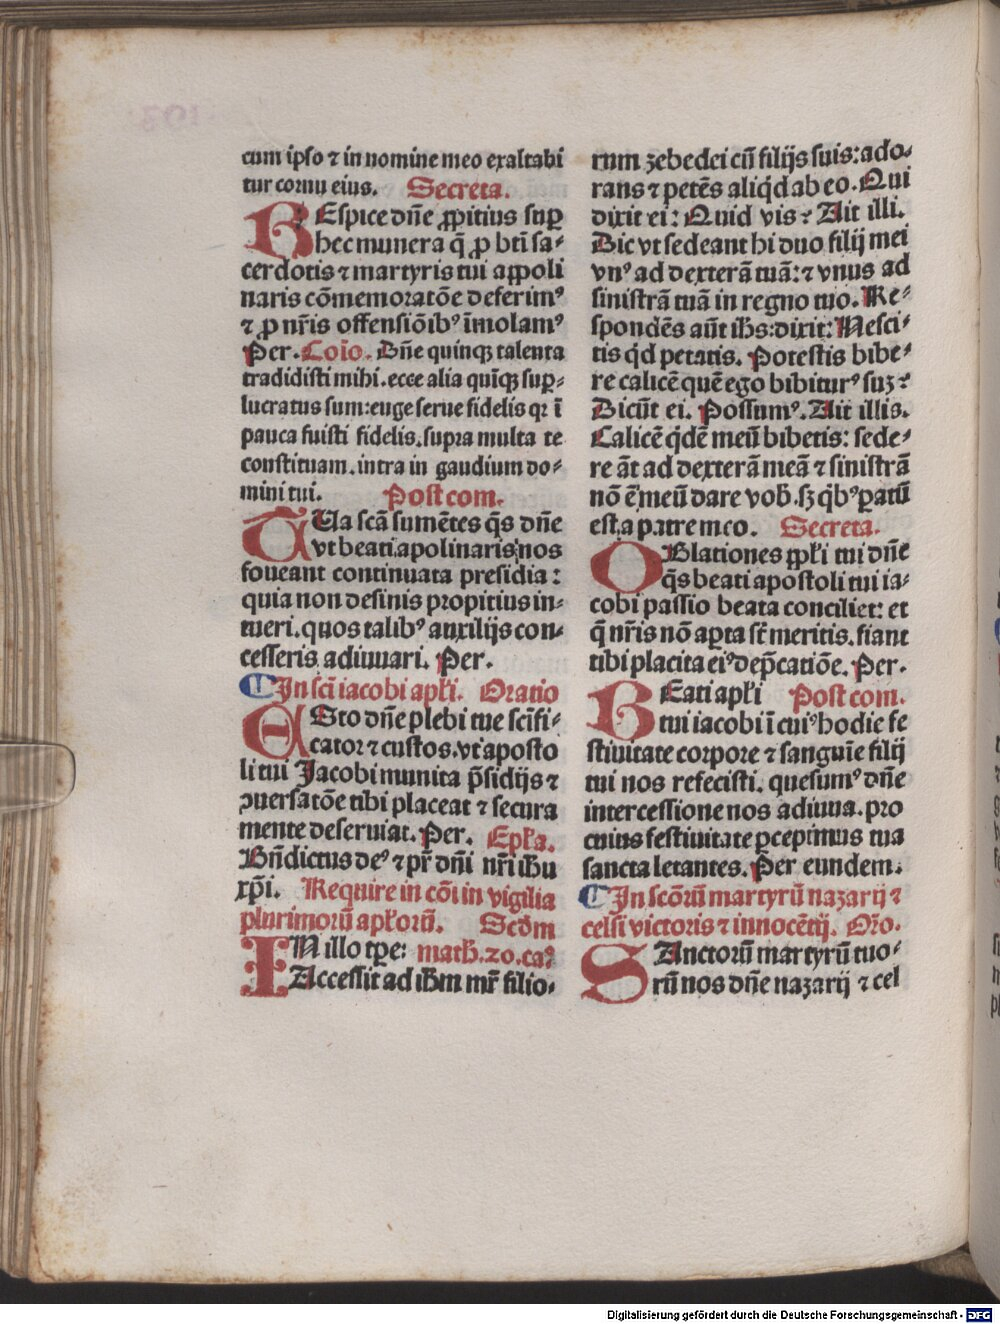 cum ipso ⁊ in nomine meo exaltabi
tur cornu eius. Secreta.
REspice dn̄e ꝓpitius suꝑ
hec munera q̄ ꝓ bt̄i sa-
cerdotis ⁊ martyris tui appoli
naris cōmemoratōe deferimꝰ
⁊ ꝓ nr̄is offensiōibꝰ īmolamꝰ
Per. Coīo. Dn̄e quinqꝫ talenta
tradidisti mihi. ecce alia quīqꝫ suꝑ-
lucratus sum: euge serue fidelis qꝛ ī
pauca fuisti fidelis. supra multa te
constituam. intra in gaudium do-
mini tui. Post com.
TUa scā sumētes q̄s dn̄e
vt beati apolinaris nos
foueant continuata presidia:
quia non desinis propitius in-
tueri. quos talibꝰ auxilijs con-
cesseris adiuuari. Per.
In sc̄i iacobi apl̄i. Oratio
ESto dn̄e plebi tue sc̄ifi-
cator ⁊ custos. vt aposto
li tui Jacobi munita p̄sidijs ⁊
ꝯuersatōe tibi placeat ⁊ secura
mente deseruiat. Per. Epl̄a.
Bn̄dictus deꝰ ⁊ pr̄ dn̄i nr̄i ihū
xp̄i. Require in cōi in vigilia
plurimorū apl̄orū. Scd̄m
IN illo tꝑe: math. 20. ca°
Accessit ad ihm̄ mr̄ filio-
rum zebedei cū filijs suis: ado-
rans ⁊ petēs aliqd ab eo. Qui
dixit ei: Quid vis? Ait illi.
Dic vt sedeant hi duo filij mei
vnꝰ ad dexterā tuā: ⁊ vnus ad
sinistrā tuā in regno tuo. Re-
spondēs aūt ihs: dixit: Nesci-
tis qd petatis. Potestis bibe-
re calicē quē ego bibiturꝰ suꝫ?
Dicūt ei. Possumꝰ. Ait illis.
Calicē qdē meū bibetis: sede-
re āt ad dexterā meā ⁊ sinistrā
nō ē meū dare vob. sꝫ qbꝰ ꝑatū
est a patre meo. Secreta.
OBlationes ppl̄i tui dn̄e
q̄s beati apostoli tui ia-
cobi passio beata conciliet: et
q̄ nr̄is nō apta st̄ meritis. fiant
tibi placita eiꝰ dep̄catiōe. Per.
BEati apl̄i Post com.
tui iacobi ī cuiꝰ hodie fe
stiuitate corpore ⁊ sanguīe filij
tui nos refecisti. quesumꝰ dn̄e
intercessione nos adiuua. pro
cuius festiuitate ꝑcepimus tua
sancta letantes. Per eundem.
In scōrū martyrū nazarij ⁊
celsi victoris ⁊ innocētij. Or̄o.
SAnctorū martyrū tuo-
rū nos dn̄e nazarij ⁊ cel
Digitalisierung gefördert durch die Deutsche Forschungsgemeinschaft - DFG